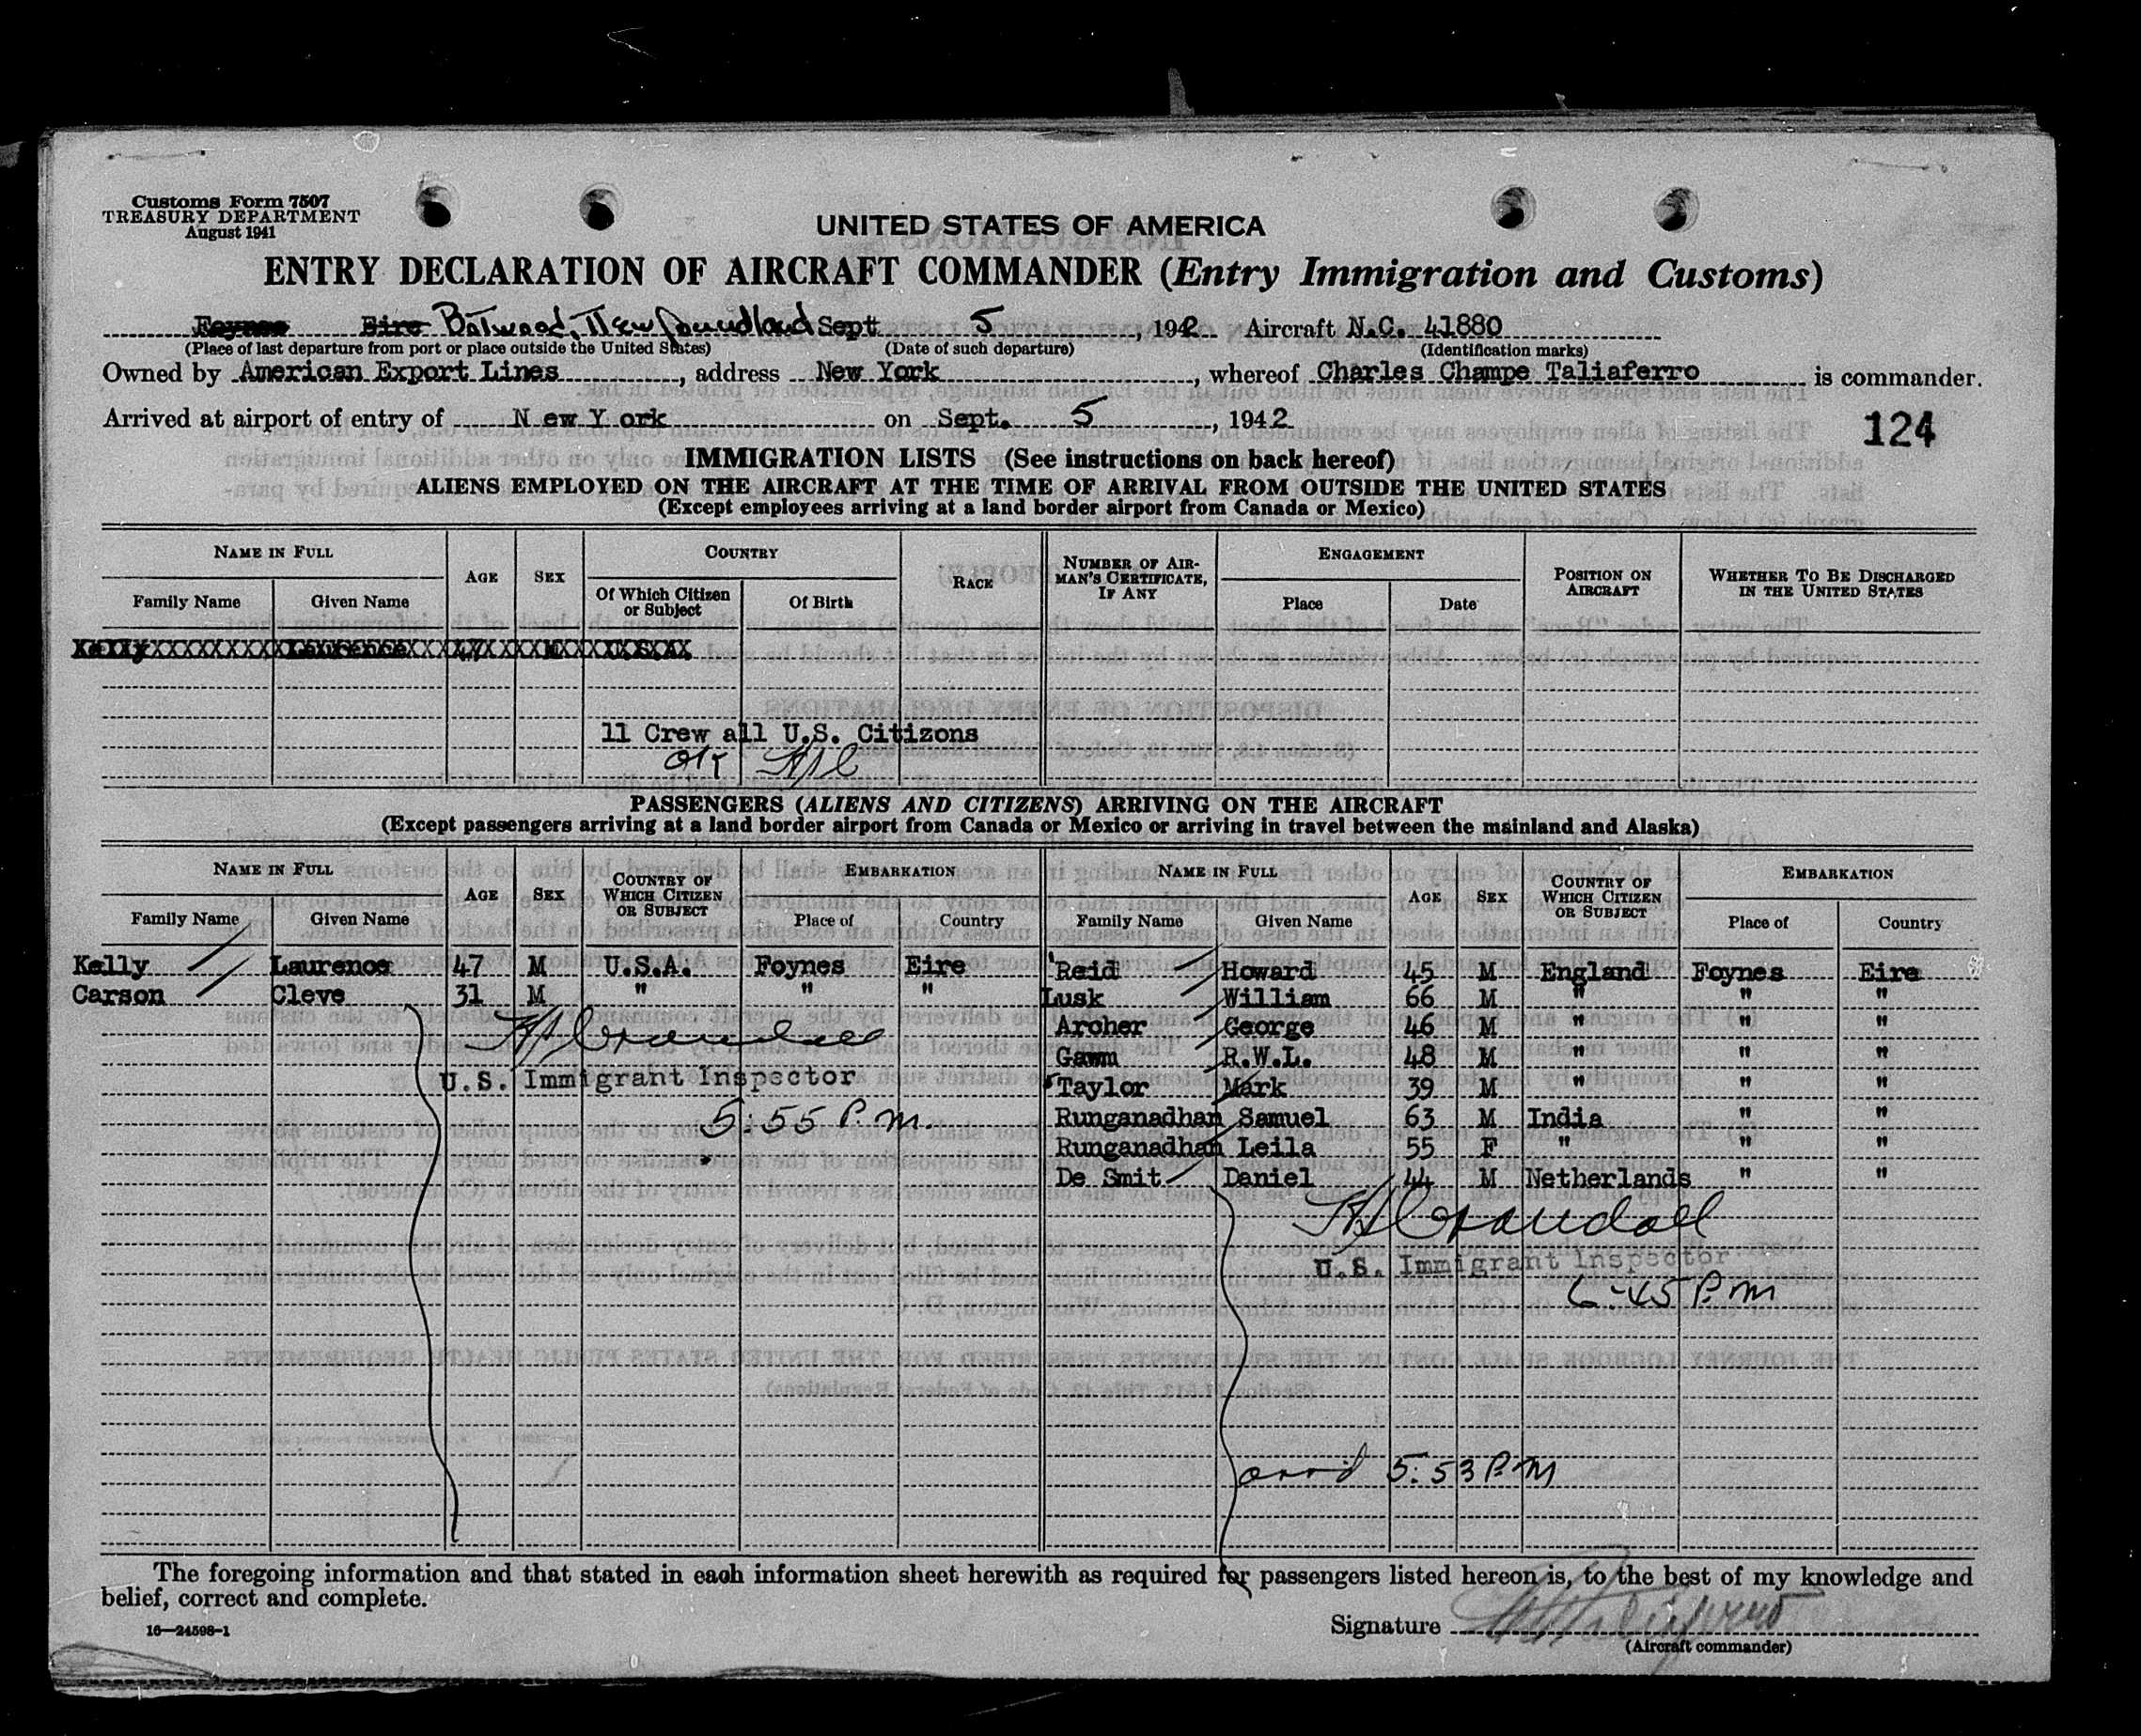 Customs Form 7507
TREASURY DEPARTMENT
August 1941
UNITED STATES OF AMERICA
ENTRY DECLARATION OF AIRCRAFT COMMANDER (Entry Immigration and Customs)
Foynes Eire Botwood, Newfoundland Sept 5, 1942 Aircraft N.C. 41880
(Place of last departure from port or place outside the United States) (Date of such departure) (Identification marks)
Owned by American Export Lines, address New York, whereof Charles Champe Taliaferro is commander.
Arrived at airport of entry of N ew Y ork on Sept. 5, 1942
124
IMMIGRATION LISTS (See instructions on back hereof)
ALIENS EMPLOYED ON THE AIRCRAFT AT THE TIME OF ARRIVAL FROM OUTSIDE THE UNITED STATES
(Except employees arriving at a land border airport from Canada or Mexico)
NAME IN FULL AGE SEX COUNTRY RACE NUMBER OF AIRMAN'S CERTIFICATE, IF ANY ENGAGEMENT POSITION ON AIRCRAFT WHETHER TO BE DISCHARGED IN THE UNITED STATES
Family Name Given Name Of Which Citizen or Subject Of Birth Place Date
Kelly Laurence 47 M U.S.A.
11 Crew all U.S. Citizons
OK
PASSENGERS (ALIENS AND CITIZENS) ARRIVING ON THE AIRCRAFT
(Except passengers arriving at a land border airport from Canada or Mexico or arriving in travel between the mainland and Alaska)
NAME IN FULL AGE SEX COUNTRY OF WHICH CITIZEN OR SUBJECT EMBARKATION NAME IN FULL AGE SEX COUNTRY OF WHICH CITIZEN OR SUBJECT EMBARKATION
Family Name Given Name Place of Country Family Name Given Name Place of Country
Kelly Laurence 47 M U.S.A. Foynes Eire Reid Howard 45 M England Foynes Eire
Carson Cleve 31 M " " " Lusk William 66 M " " "
Archer George 46 M " " "
Gawm R.W.L. 48 M " " "
U.S. Immigrant Inspector Taylor Mark 39 M " " "
5:55 P.M. Runganadhan Samuel 63 M India " "
Runganadhan Leila 55 F " " "
De Smit Daniel 44 M Netherlands " "
Crandall
U.S. Immigrant Inspector
6-45 P.M
arrid 5:53 P.M
The foregoing information and that stated in each information sheet herewith as required for passengers listed hereon is, to the best of my knowledge and
belief, correct and complete.
16—24598-1
Signature
(Aircraft commander)